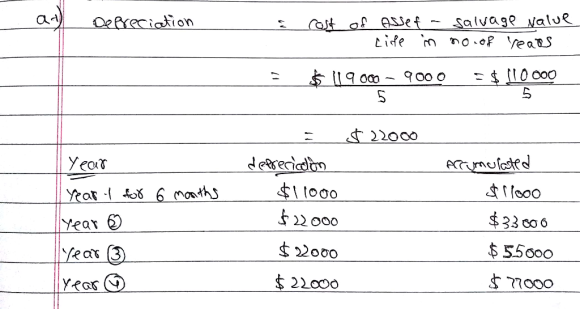 a-1) Depreciation = Cost of Asset - Salvage value
Life in no.of years
= $ 119000 - 9000 = $ 110000
5 5
= $ 22000
Year depreciation Accumulated
Year-1 for 6 months $11000 $11000
Year ② $22000 $33000
Year ③ $22000 $55000
Year ④ $22000 $77000